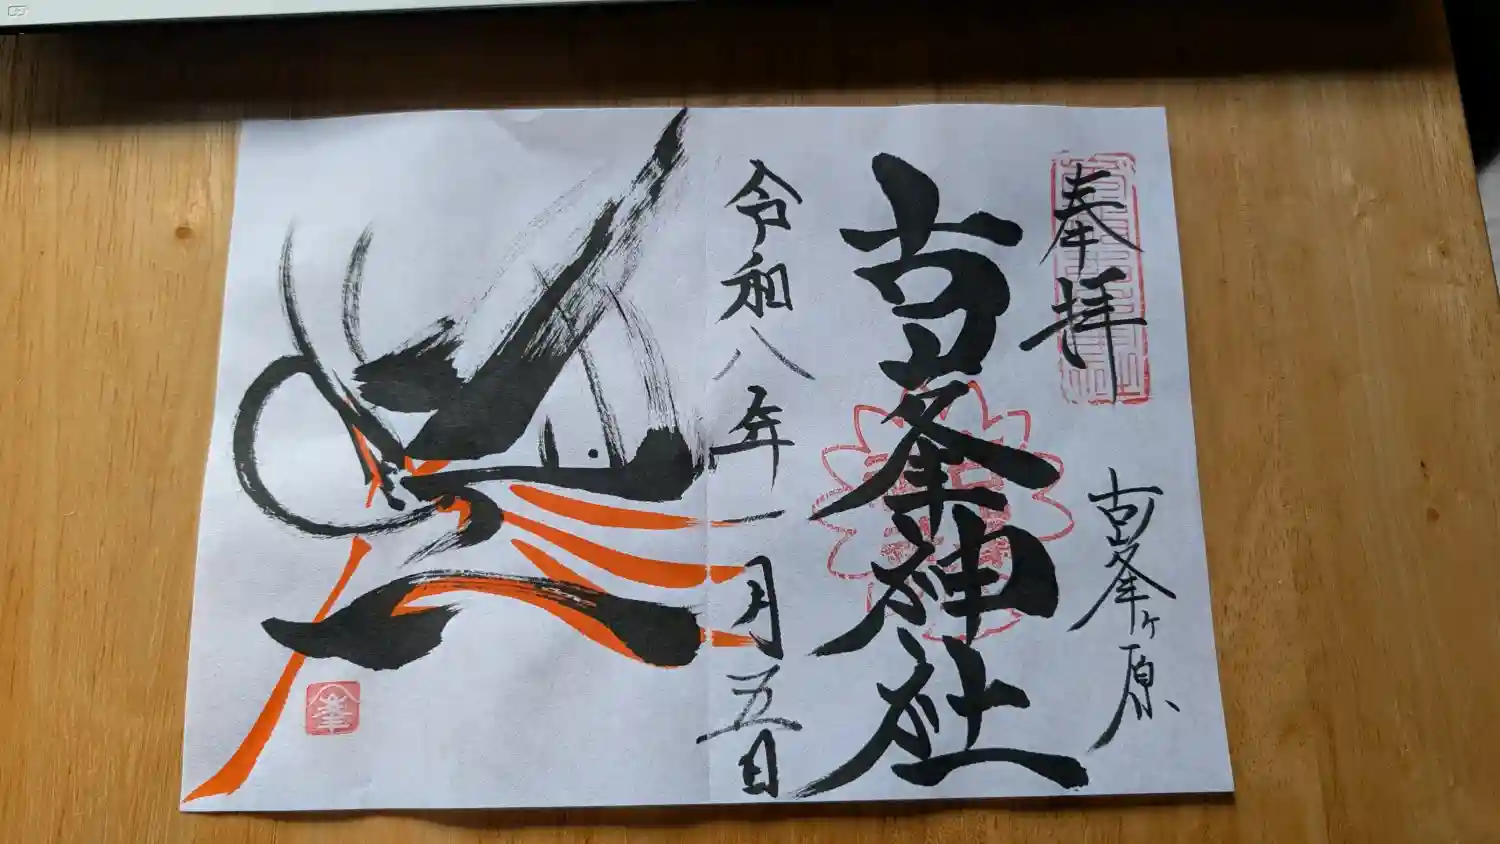 奉拝
古峯ヶ原
古峯神社
令和八年一月五日
峯